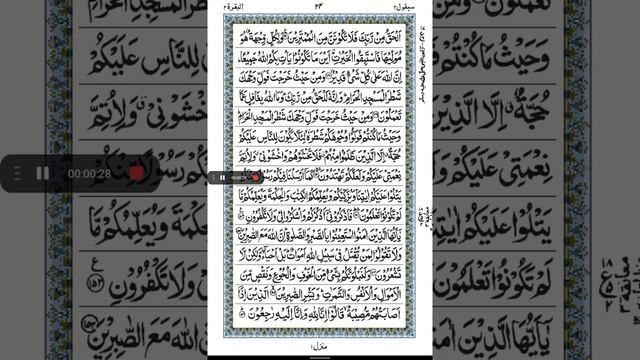 سيقول٢ ٢٤ البقرة٢
اَلْحَقُّ مِنْ رَّبِّكَ فَلَا تَكُوْنَنَّ مِنَ الْمُمْتَرِيْنَ وَلِكُلٍّ وِّجْهَةٌ هُوَ
مُوَلِّيْهَا فَاسْتَبِقُوا الْخَيْرٰتِ اَيْنَ مَا تَكُوْنُوْا يَاْتِ بِكُمُ اللّٰهُ جَمِيْعًا
اِنَّ اللّٰهَ عَلٰى كُلِّ شَيْءٍ قَدِيْرٌ وَمِنْ حَيْثُ خَرَجْتَ فَوَلِّ وَجْهَكَ
شَطْرَ الْمَسْجِدِ الْحَرَامِ وَاِنَّهٗ لَلْحَقُّ مِنْ رَّبِّكَ وَمَا اللّٰهُ بِغَافِلٍ عَمَّا
تَعْمَلُوْنَ وَمِنْ حَيْثُ خَرَجْتَ فَوَلِّ وَجْهَكَ شَطْرَ الْمَسْجِدِ الْحَرَامِ
وَحَيْثُ مَا كُنْتُمْ فَوَلُّوْا وُجُوْهَكُمْ شَطْرَهٗ لِئَلَّا يَكُوْنَ لِلنَّاسِ عَلَيْكُمْ
حُجَّةٌ اِلَّا الَّذِيْنَ ظَلَمُوْا مِنْهُمْ فَلَا تَخْشَوْهُمْ وَاخْشَوْنِيْ وَلِاُتِمَّ
نِعْمَتِيْ عَلَيْكُمْ وَلَعَلَّكُمْ تَهْتَدُوْنَ كَمَا اَرْسَلْنَا فِيْكُمْ رَسُوْلًا مِّنْكُمْ
يَتْلُوْا عَلَيْكُمْ اٰيٰتِنَا وَيُزَكِّيْكُمْ وَيُعَلِّمُكُمُ الْكِتٰبَ وَالْحِكْمَةَ وَيُعَلِّمُكُمْ مَّا
لَمْ تَكُوْنُوْا تَعْلَمُوْنَ فَاذْكُرُوْنِيْ اَذْكُرْكُمْ وَاشْكُرُوْا لِيْ وَلَا تَكْفُرُوْنِ
يٰاَيُّهَا الَّذِيْنَ اٰمَنُوا اسْتَعِيْنُوْا بِالصَّبْرِ وَالصَّلٰوةِ اِنَّ اللّٰهَ مَعَ الصّٰبِرِيْنَ
وَلَا تَقُوْلُوْا لِمَنْ يُّقْتَلُ فِيْ سَبِيْلِ اللّٰهِ اَمْوَاتٌ بَلْ اَحْيَاءٌ وَّلٰكِنْ لَّا
تَشْعُرُوْنَ وَلَنَبْلُوَنَّكُمْ بِشَيْءٍ مِّنَ الْخَوْفِ وَالْجُوْعِ وَنَقْصٍ مِّنَ
الْاَمْوَالِ وَالْاَنْفُسِ وَالثَّمَرٰتِ وَبَشِّرِ الصّٰبِرِيْنَ الَّذِيْنَ اِذَا
اَصَابَتْهُمْ مُّصِيْبَةٌ قَالُوْا اِنَّا لِلّٰهِ وَاِنَّا اِلَيْهِ رٰجِعُوْنَ
منزل١
00:00:28